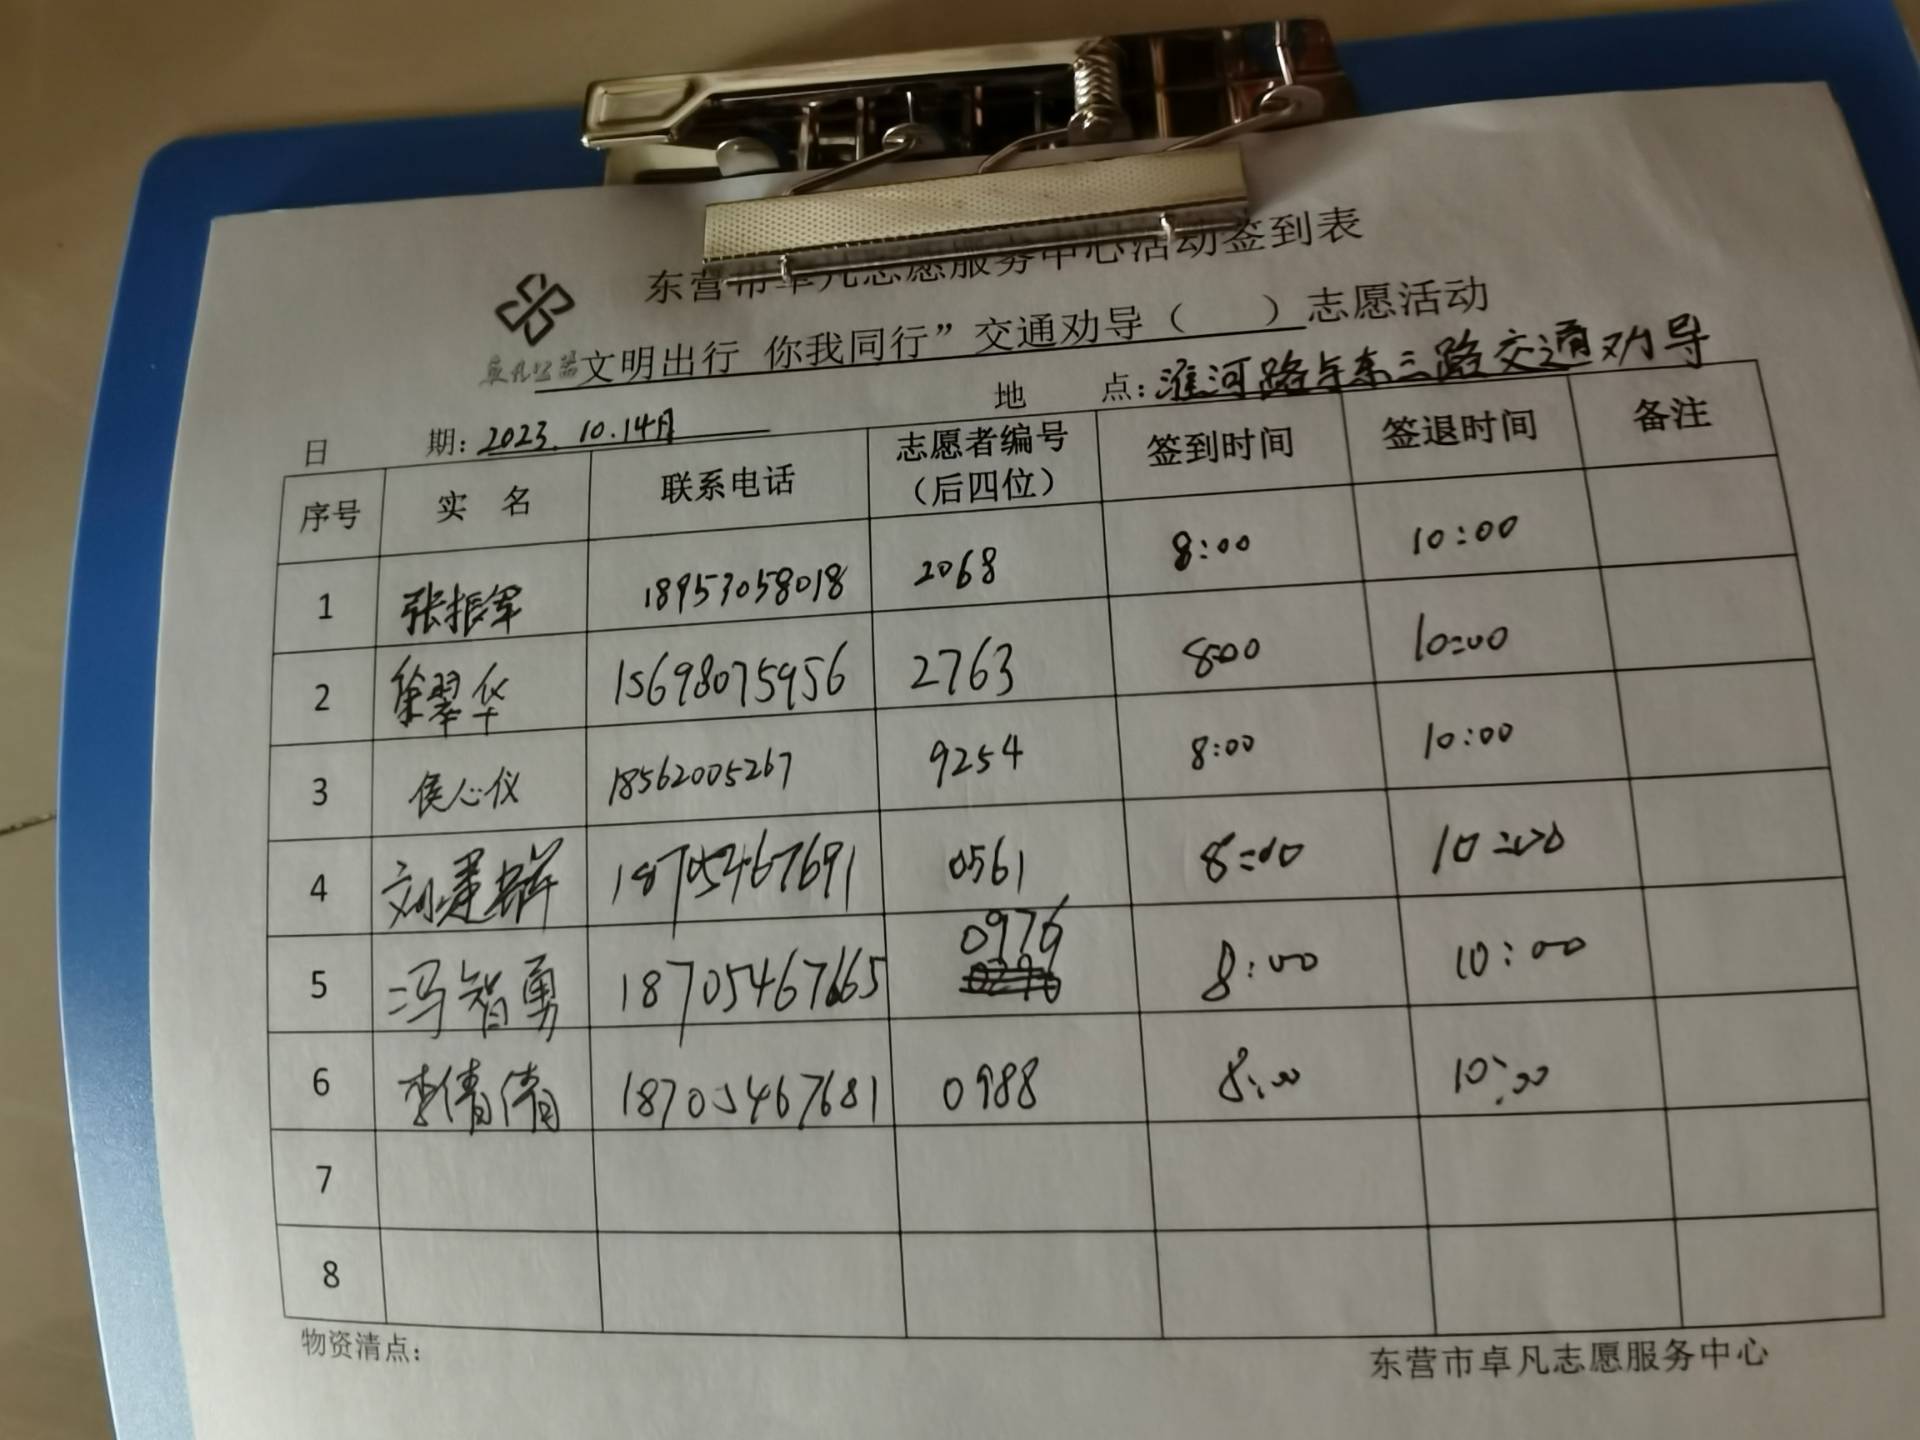 东营市卓凡志愿服务中心活动签到表
卓凡公益
文明出行 你我同行”交通劝导（ ）志愿活动
日 期：2023.10.14月 地 点：淮河路与东三路交通劝导
序号 实 名 联系电话 志愿者编号（后四位） 签到时间 签退时间 备注
1 张振军 18953058018 2068 8:00 10:00
2 徐翠华 15698075956 2763 8:00 10:00
3 侯心仪 18562005267 9254 8:00 10:00
4 刘 18705467691 0561 8:00 10:00
5 冯智勇 18705467665 0976 8:00 10:00
6 李倩倩 18705467681 0988 8:00 10:00
7
8
物资清点：
东营市卓凡志愿服务中心